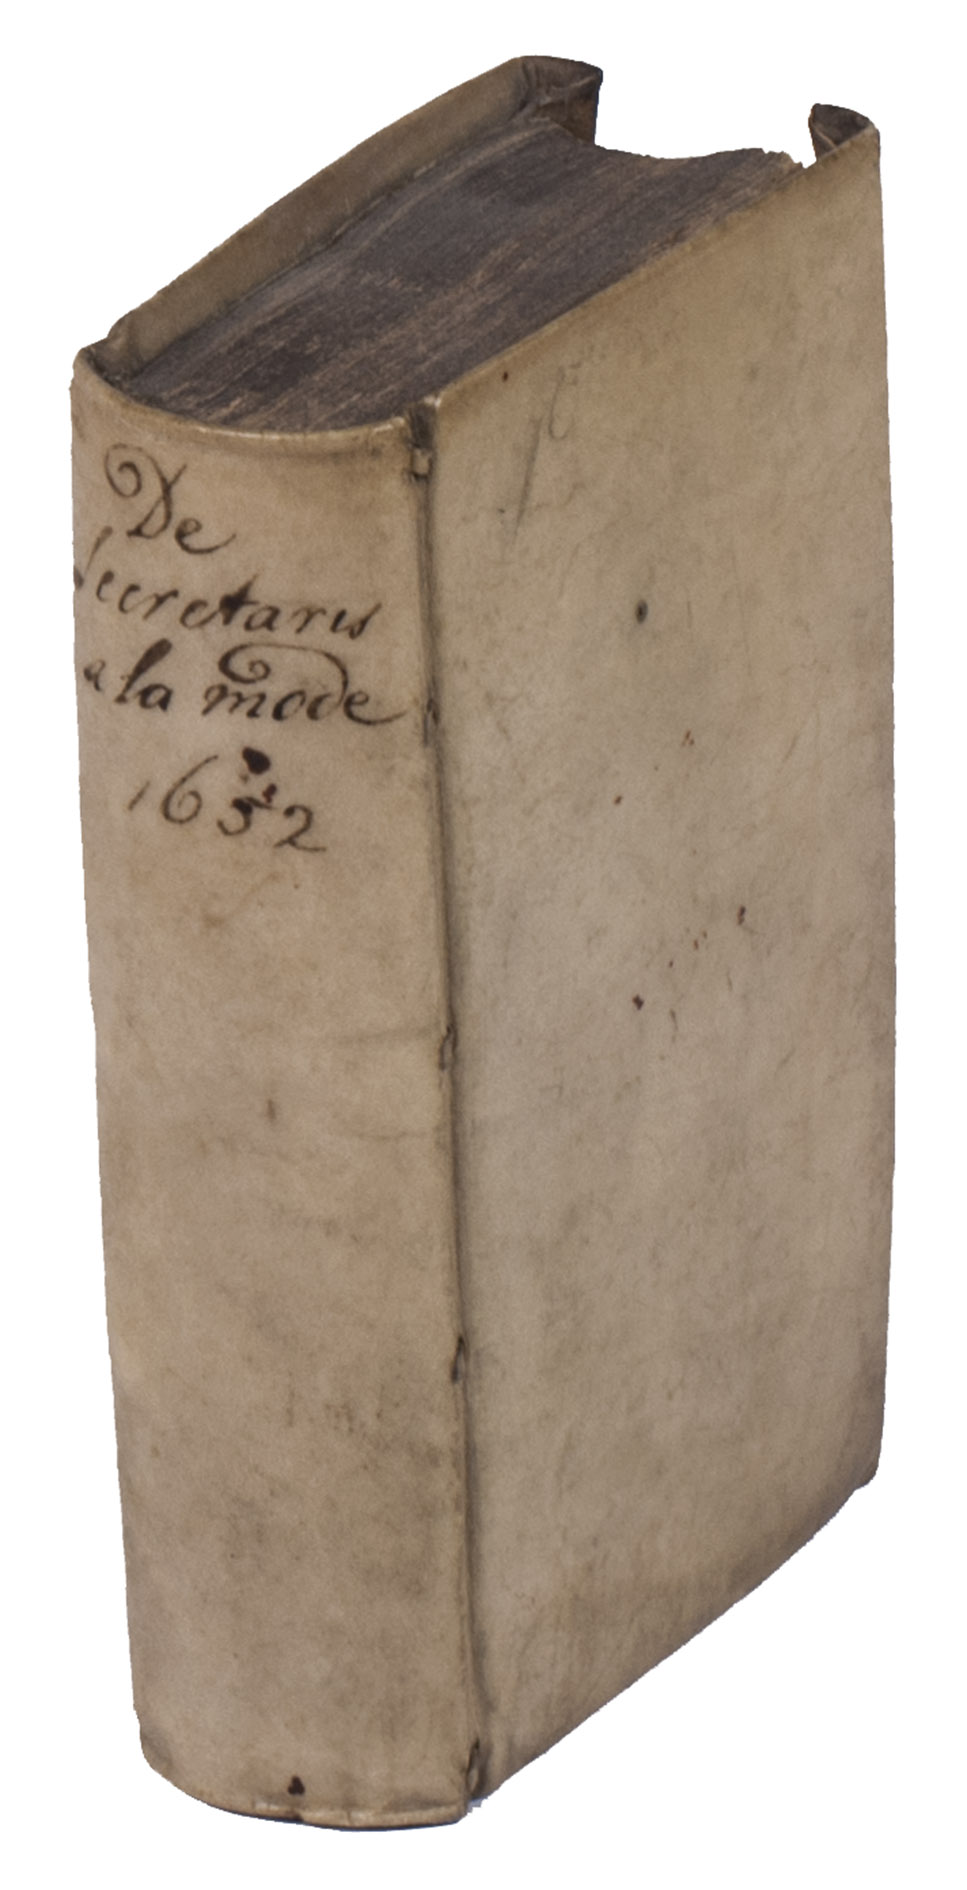 De
Secretaris
a la mode
1652